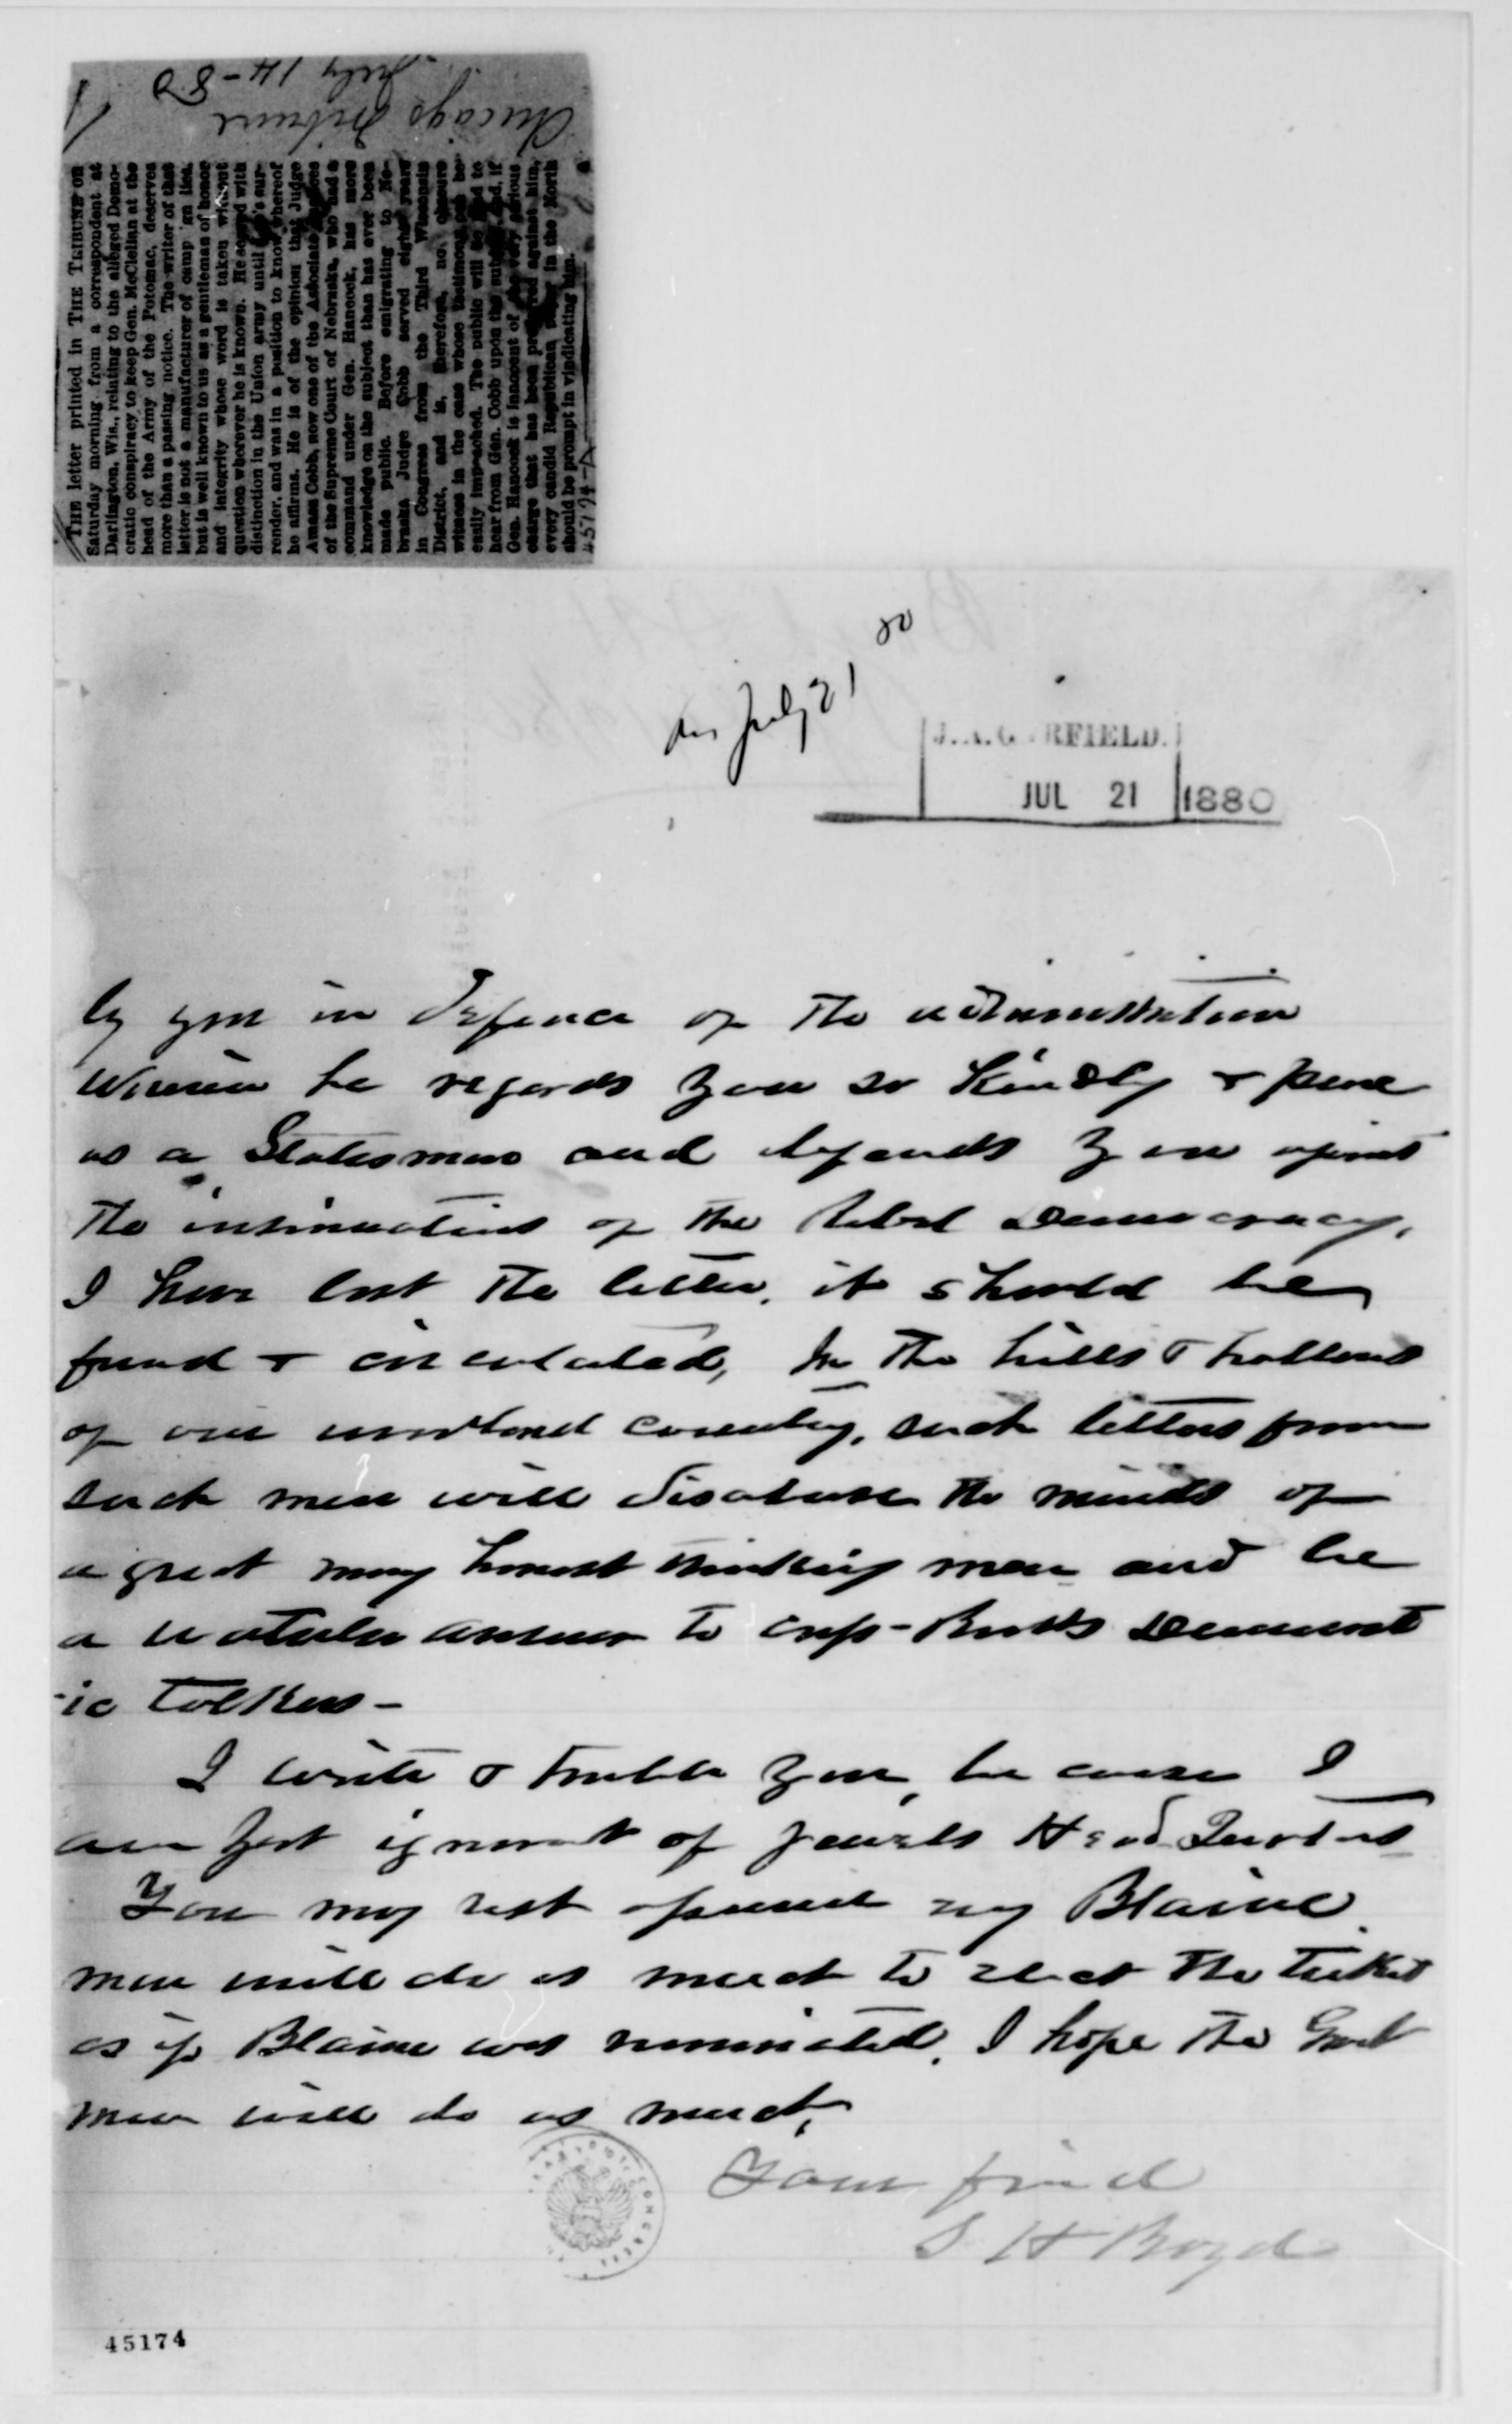 Chicago Tribune
July 14-80
THE letter printed in THE TRIBUNE on
Saturday morning from a correspondent at
Darlington, Wis., relating to the alleged Demo-
cratic conspiracy to keep Gen. McClellan at the
head of the Army of the Potomac, deserves
more than a passing notice. The writer of that
letter is not a manufacturer of campaign lies,
but is well known to us as a gentleman of honor
and integrity whose word is taken without
question wherever he is known. He served with
distinction in the Union army until 's sur-
render, and was in a position to know whereof
he affirms. He is of the opinion that Judge
Amasa Cobb, now one of the Associate Justices
of the Supreme Court of Nebraska, who had a
command under Gen. Hancock, has more
knowledge on the subject than has ever been
made public. Before emigrating to Ne-
braska Judge Cobb served eight years
in Congress from the Third Wisconsin
District, and is, therefore, no obscure
witness in the case whose testimony can be
easily impeached. The public will be glad to
hear from Gen. Cobb upon the subject, and, if
Gen. Hancock is innocent of the very serious
charge that has been preferred against him,
every candid Republican paper in the North
should be prompt in vindicating him.
45174-A
July 21 80
J. A. GARFIELD.
JUL 21 1880
by you in defence of the administration
Wherein he regards you so Kindly & pure
as a Statesman and defends you against
the insinuations of the Rebel Democracy,
I have lost the letter, it should be
found & circulated, In the hills & hollows
of our country, such letters from
such men will disabuse the minds of
a great many honest thinking men and be
a answer to Democrat
-ic talkers -
I write & trouble you, because I
am yet ignorant of Head Quarters
You may rest assured my Blaine
men will do as much to elect the ticket
as if Blaine was nominated. I hope the Grant
men will do as much,
Your friend
S H Boyd
LIBRARY OF CONGRESS
45174